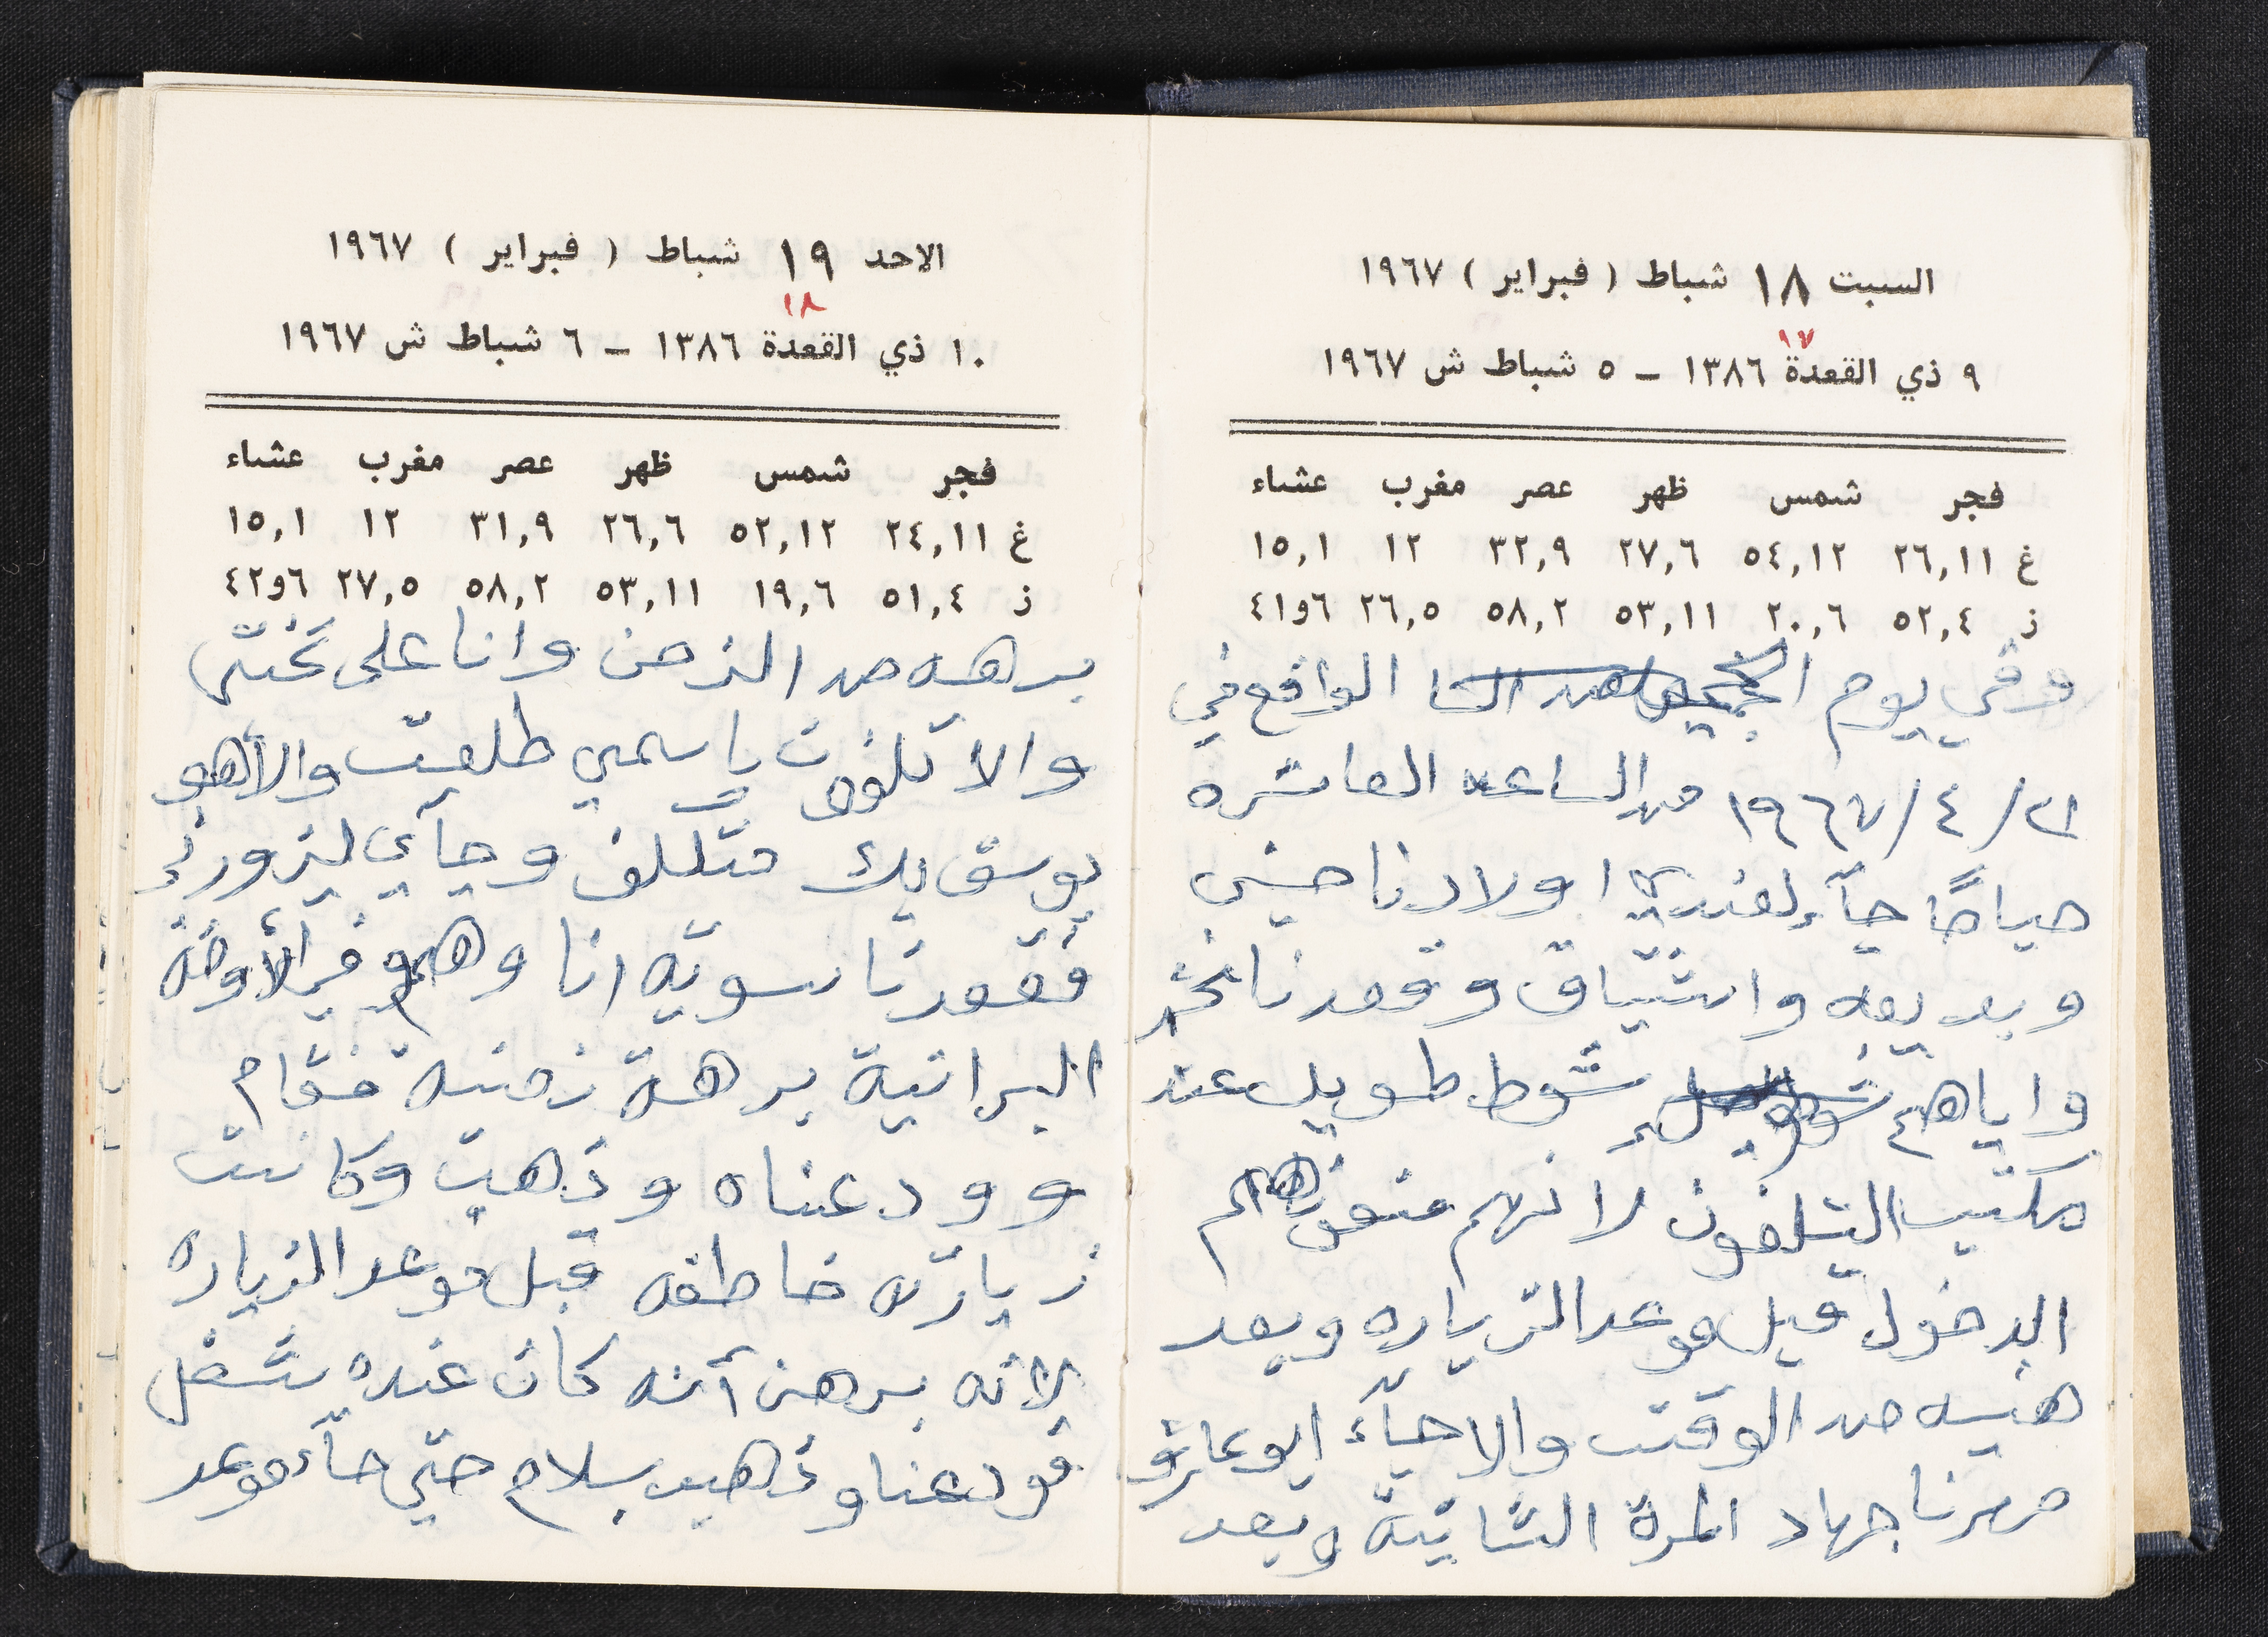 السبت ١٨ شباط ( فبراير ) ١٩٦٧
١٧
٩ ذي القعدة ١٣٨٦ – ٥ شباط ش ١٩٦٧
فجر شمس ظهر عصر مغرب عشاء
غ ٢٦,١١ ٥٤,١٢ ٢٧,٦ ٣٢,٩ ١٢ ١٥,١
ذ ٥٢,٤ ٢٠,٦ ٥٣,١١ ٥٨,٢ ٢٦,٥ ٤١و٦
وفي يوم الواقع في
١٩٦٧/٤/٢١ من الساعه العاشره
صباحًا جآء لعندي اولادنا حسني
وبديعه واشتياق وقعدنا نحن
واياهم شوط طويل عند
مكتب التلفون لانهم منعوهم
الدخول قبل موعد الزياره وبعد
هنيه من الوقت والا جآء ابو عاتو
صهرنا جهاد المرة الثانية وبعد
الاحد ١٩ شباط ( فبراير ) ١٩٦٧
١٨
١٠ ذي القعدة ١٣٨٦ – ٦ شباط ش ١٩٦٧
فجر شمس ظهر عصر مغرب عشاء
غ ٢٤,١١ ٥٢,١٢ ٢٦,٦ ٣١,٩ ١٢ ١٥,١
ذ ٥١,٤ ١٩,٦ ٥٣,١١ ٥٨,٢ ٢٧,٥ ٤٢و٦
برهه من الزمن وانا على تختي
والا تلفون باسمي طلعت والا هو
يوسف بك متللف وجآي ليزورني
فقعدنا سويه انا وهو في الأوضه
البرانية برهة زمنية فقام
وودعناه وذهب وكانت
زيارته خاطفه قبل موعد الزياره
لانه برهن أنه كان عنده شغل
فودعنا وذهب بسلام حتى جآء موعد